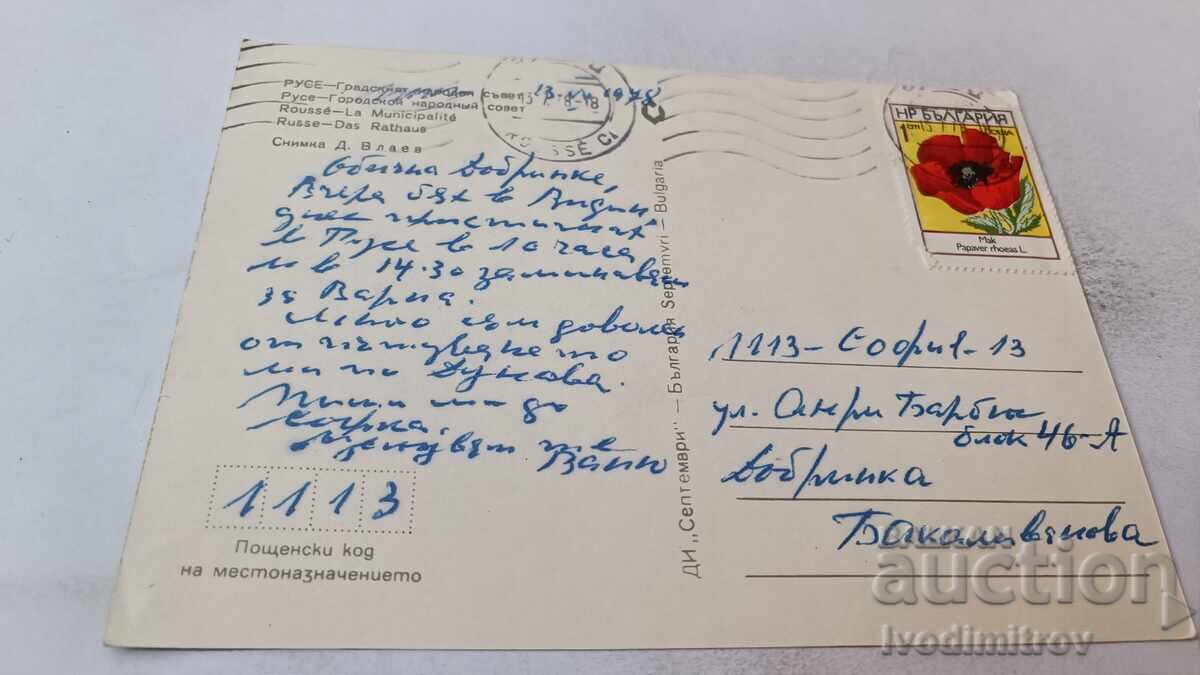 РУСЕ — Градският народен съвет
Русе — Городской народный совет
Roussé — La Municipalité
Russe — Das Rathaus
Снимка Д. Влаев
1978
Обична Добринке,
Вчера бях в Видин
днес пристигнах
в Русе в 10 часа
и в 14.30 заминавам
за Варна.
Много съм доволен
от пътуването
ми по Дунава.
Пиши ми до
Варна.
Целувам те
Ваньо
1113
Пощенски код
на местоназначението
ДИ „Септември" — България Septemvri — Bulgaria
НР БЪЛГАРИЯ
1 ст
ПОЩА
Мак
Papaver rhoeas L.
1113 – София – 13
ул. Анри Барбюс
блок 46-А
Добринка
Бакаливанова
BALKAN
auction
Ivodimitrov